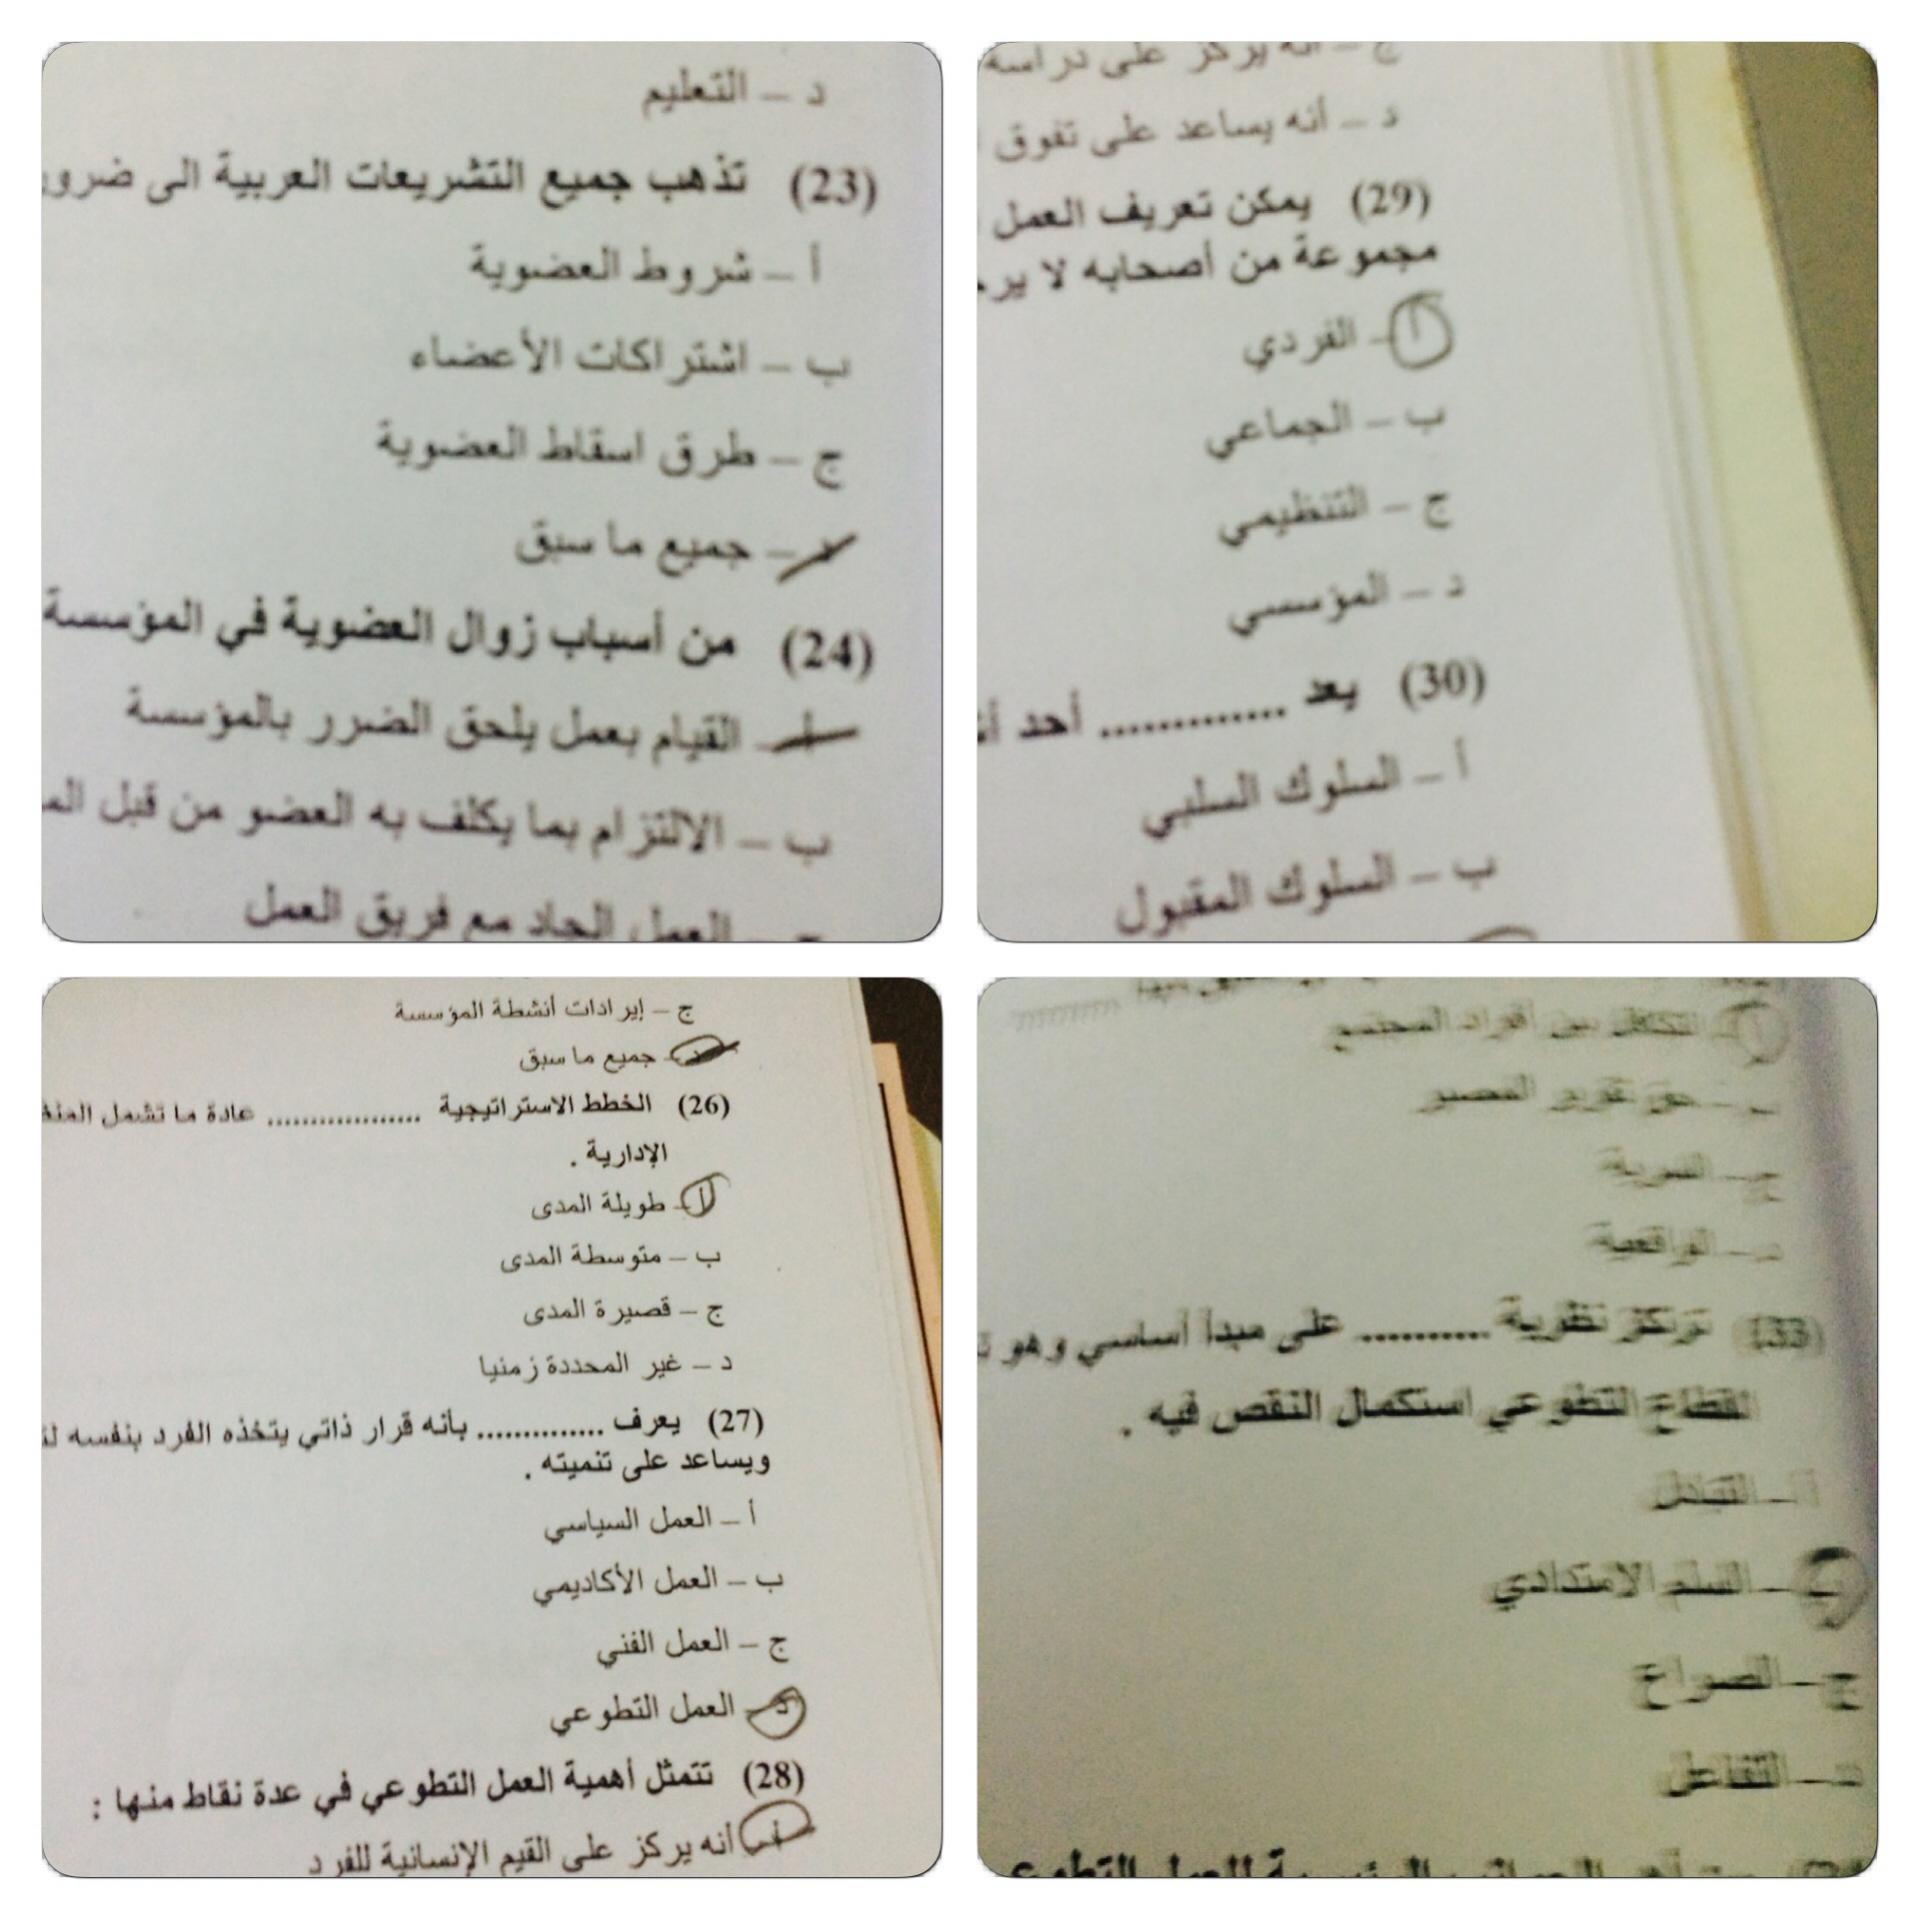 د – التعليم
(23) تذهب جميع التشريعات العربية الى
أ – شروط العضوية
ب – اشتراكات الأعضاء
ج – طرق اسقاط العضوية
د – جميع ما سبق
(24) من أسباب زوال العضوية في المؤسسة
أ – القيام بعمل يلحق الضرر بالمؤسسة
ب – الالتزام بما يكلف به العضو من قبل
ج – العمل الجاد مع فريق العمل
ج – أنه يركز على دراسة
د – أنه يساعد على تفوق
(29) يمكن تعريف العمل
مجموعة من أصحابه لا
أ – الفردي
ب – الجماعي
ج – التنظيمي
د – المؤسسي
(30) يعد ............. أحد
أ – السلوك السلبي
ب – السلوك المقبول
ج – إيرادات أنشطة المؤسسة
د – جميع ما سبق
(26) الخطط الاستراتيجية .................. عادة ما تشمل
الإدارية .
أ – طويلة المدى
ب – متوسطة المدى
ج – قصيرة المدى
د – غير المحددة زمنيا
(27) يعرف .............. بأنه قرار ذاتي يتخذه الفرد بنفسه
ويساعد على تنميته .
أ – العمل السياسي
ب – العمل الأكاديمي
ج – العمل الفني
د – العمل التطوعي
(28) تتمثل أهمية العمل التطوعي في عدة نقاط منها :
أ – أنه يركز على القيم الإنسانية للفرد
أ – التكافل بين أفراد المجتمع
ب – حق تقرير المصير
ج – السرية
د – الواقعية
(33) ترتكز نظرية ........... على مبدأ أساسي وهو
القطاع التطوعي استكمال النقص فيه .
أ – التبادل
ب – السلم الامتدادي
ج – الصراع
د – التفاعل